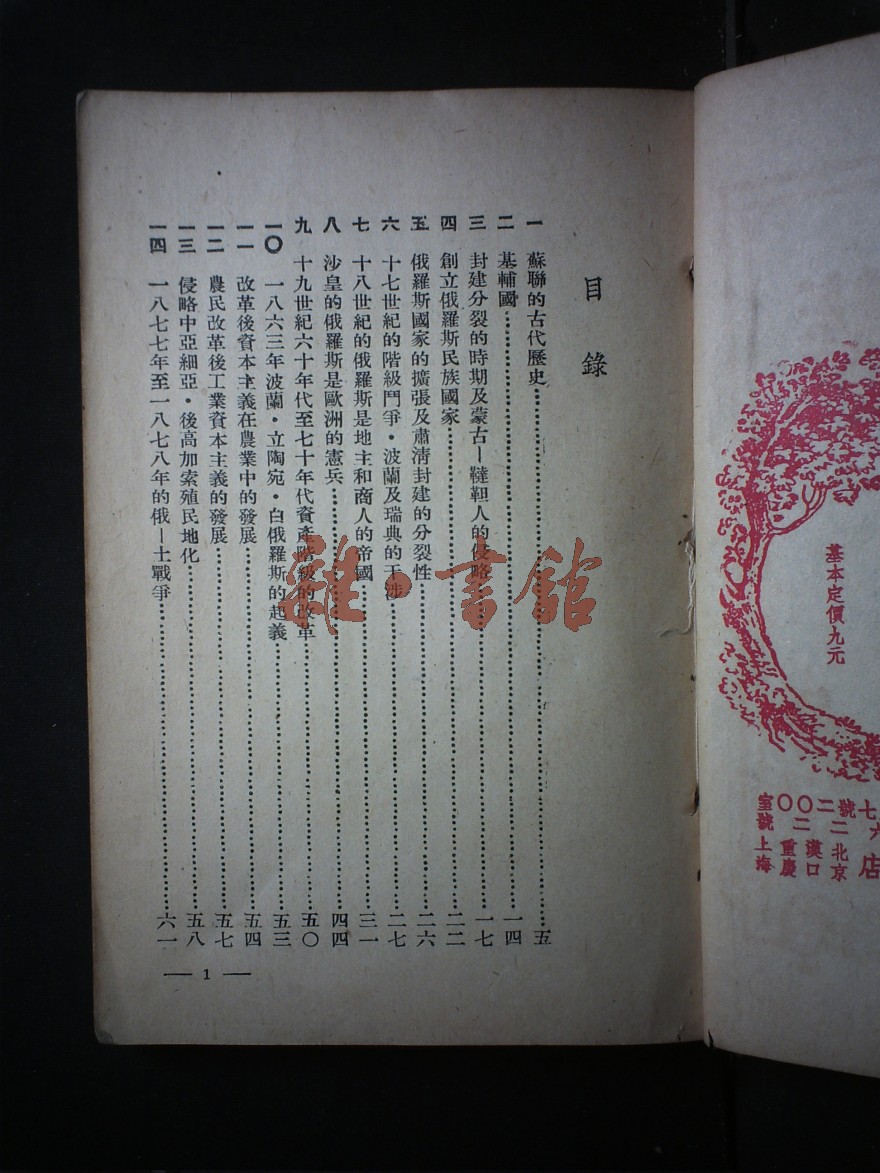 目錄
一 蘇聯的古代歷史 五
二 基輔國 一四
三 封建分裂的時期及蒙古—韃靼人的侵略 一七
四 創立俄羅斯民族國家 二二
五 俄羅斯國家的擴張及肅清封建的分裂性 二六
六 十七世紀的階級鬥爭·波蘭及瑞典的干涉 二七
七 十八世紀的俄羅斯是地主和商人的帝國 三一
八 沙皇的俄羅斯是歐洲的憲兵 四四
九 十九世紀六十年代至七十年代資產階級的改革 五〇
一〇 一八六三年波蘭·立陶宛·白俄羅斯的起義 五三
一一 改革後資本主義在農業中的發展 五四
一二 農民改革後工業資本主義的發展 五七
一三 侵略中亞細亞·後高加索殖民地化 五八
一四 一八七七年至一八七八年的俄—土戰爭 六一
— 1 —
雜·書館
基本定價九元
室〇〇二號七
號二二六
上海 重慶 漢口 北京 店